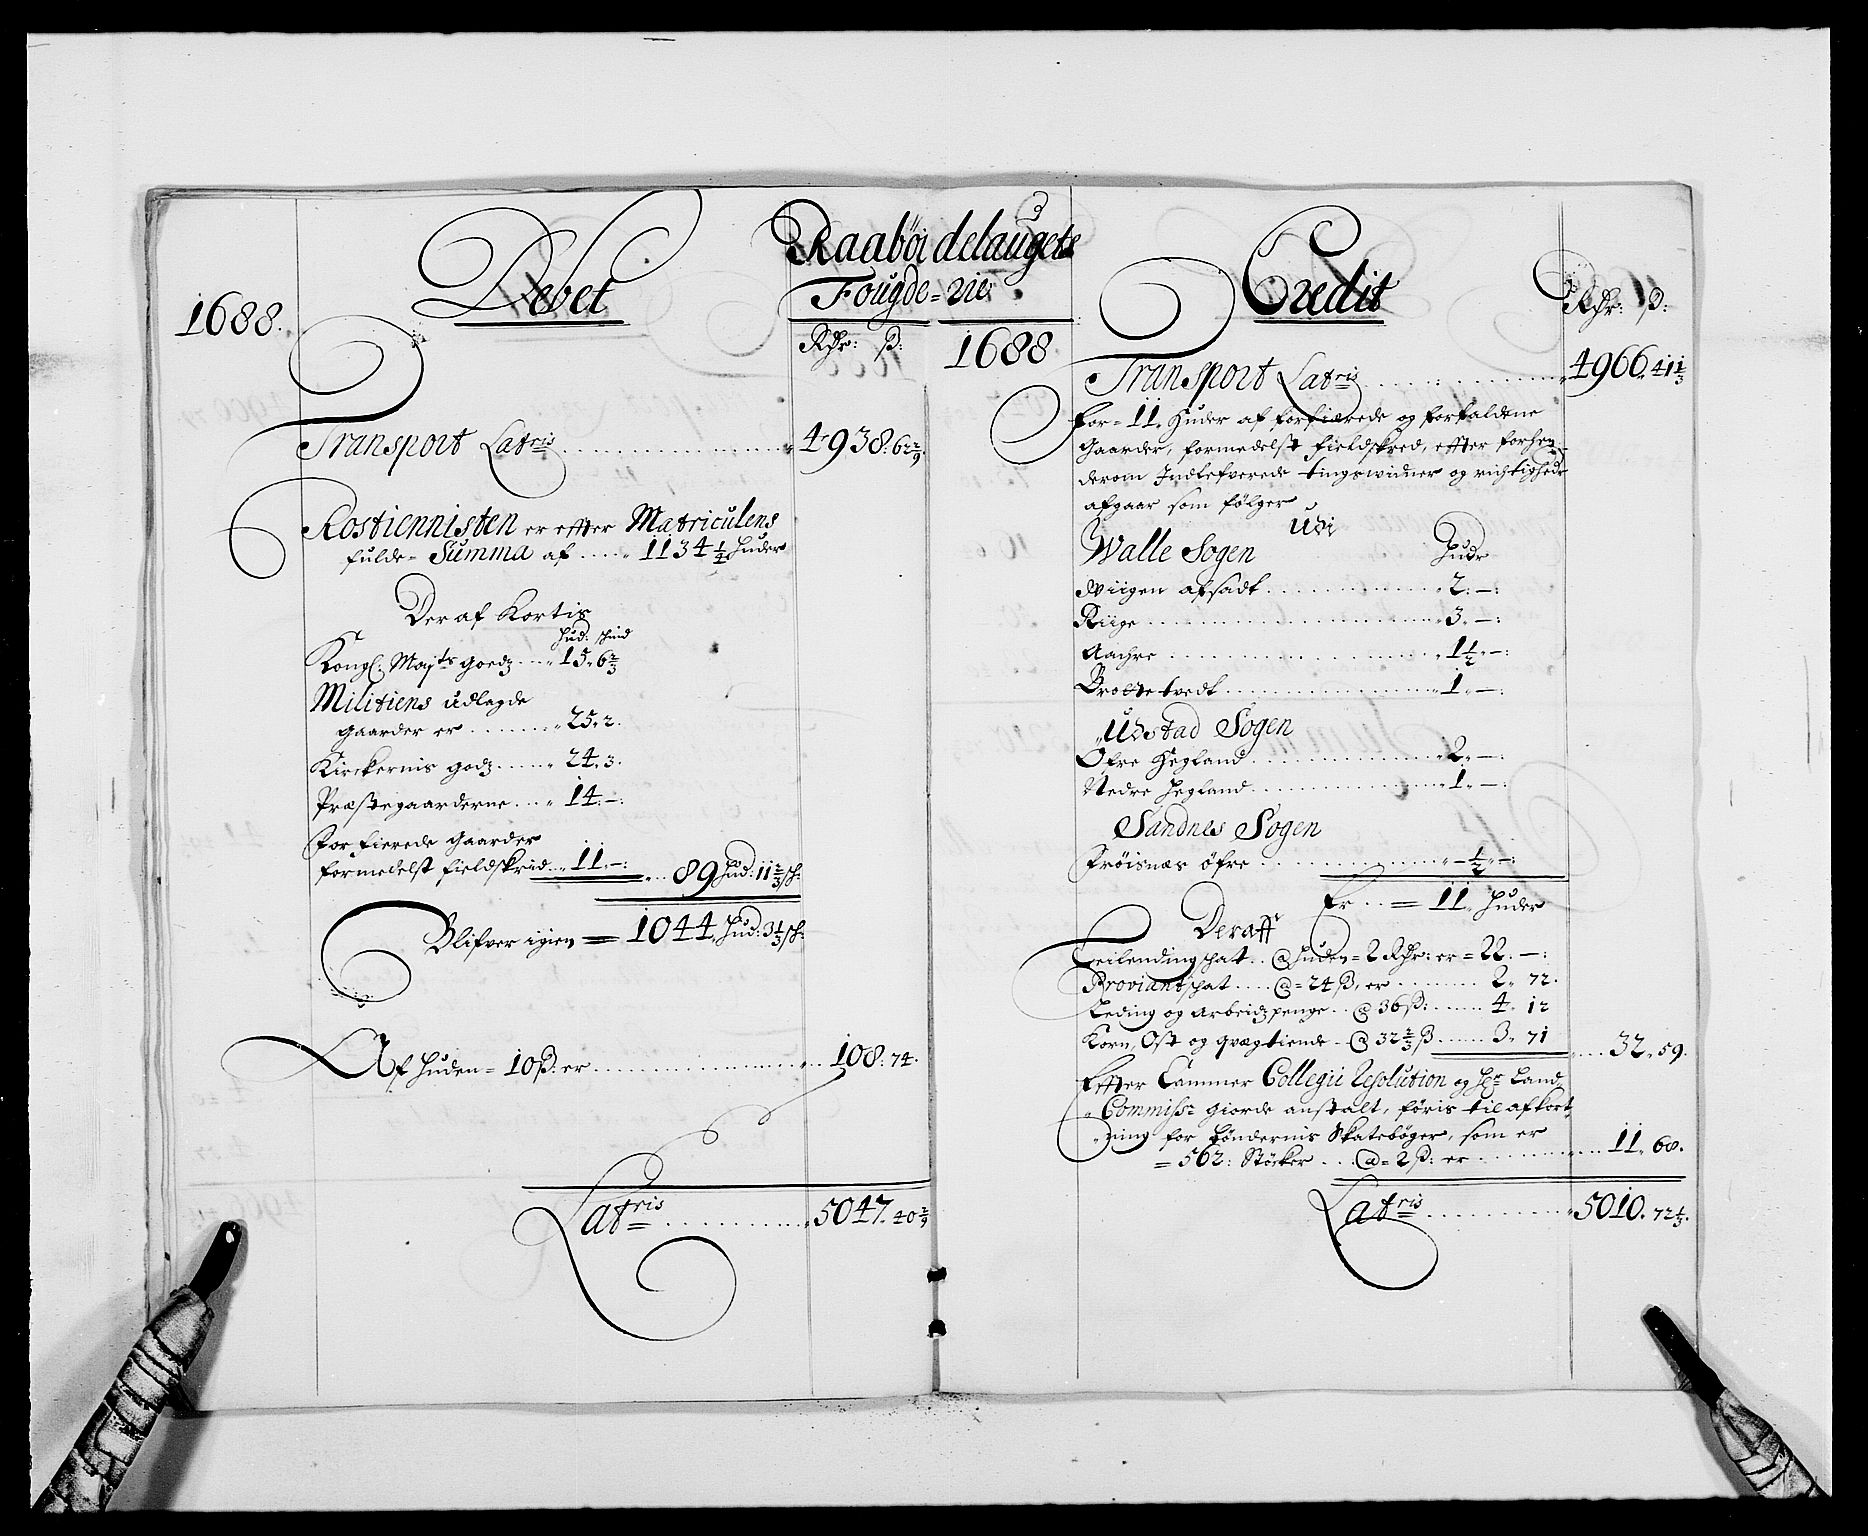 Raabøidelaugets
Fougde=rie
1688.
Debet
Rdr: ß:
Transport Latris ........ 4938: 62 2/9.
Rostiennisten er effter Matriculens
fulde= Summa af ..... 1134 1/2 Huder
Der af Kortis
Hud: schind
Kongl: Mayts goedz .... 15. 6 2/3
Militiens udlagde
gaarder er ....... 25. 2.
Kirckernis godz ..... 24. 3.
Præstegaarderne .... 14. —:
Forfierede Gaarder
formedelst fieldskrid .. 11. —: ... 89 Hud: 11 2/3 sch:
Blifver igien = 1044. Hud: 3 1/3 sch:
Af Huden= 10 ß: er ........ 108: 74.
Latris ........ 5047. 40 2/9
1688
Credit
Rdr: ß:
Transport Latris ........ 4966. 41 1/3
For= 11. Huder af forfierede og forfaldene
Gaarder, formedelst fieldskred, effter forhen
derom Indlefverede tingswidner og richtighed
afgaar som følger
Udi
Walle Sogen Hudr
Wiigen afsadt ........ 2. —:
Riige ........ 3. —:
Aachre ........ 1 1/2. —:
Brottetvedt ........ 1. —:
Udstad Sogen
Øfre Hegland ........ 2. —:
Nedre Hegland ........ 1. —:
Sandnes Sogen
Frøisnæs øfre ........ 1/2. —:
Er .. = 11. Huder
Deraff
Leilendingschatt .. @ Huden= 2 Rdr: er = 22. —:
Proviantschat .... @= 24 ß, er ...... 2. 72.
Leding og Arbeidzpenge .. @ 36 ß: ..... 4. 12
Korn, Ost og qvægtiende - @ 32 2/3 ß ..... 3. 71 .... 32. 59.
Effter Cammer Collegii Resolution og Hr Land=
Commiss: giorde anstalt, føris til afkort=
ning for bøndernis Skatebøger, som er
= 562: Støcker ... @= 2 ß: er ........ 11. 68.
Latris ........ 5010. 72 1/3.